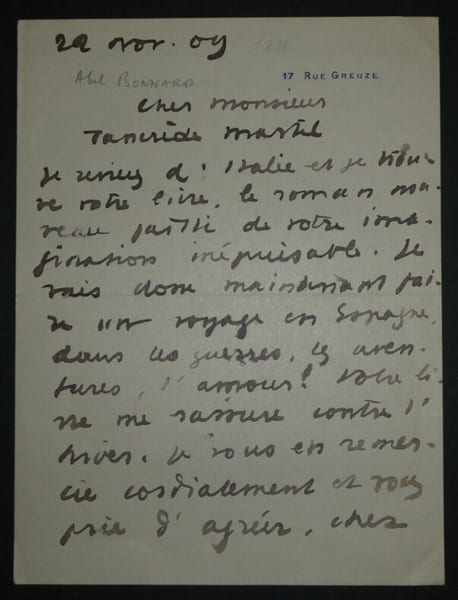 22 nov. 09
Abel BONNARD
17 RUE GREUZE
Cher Monsieur
Tancrède Martel
Je reviens d'Italie et je trou-
ve votre livre, le roman nou-
veau jailli de votre ima-
gination inépuisable. Je
vais donc maintenant fai-
re un voyage en Espagne,
dans les guerres, les aven-
tures, l'amour! Votre li-
vre me rassure contre l'
hiver. Je vous en remer-
cie cordialement et vous
prie d'agréer, cher